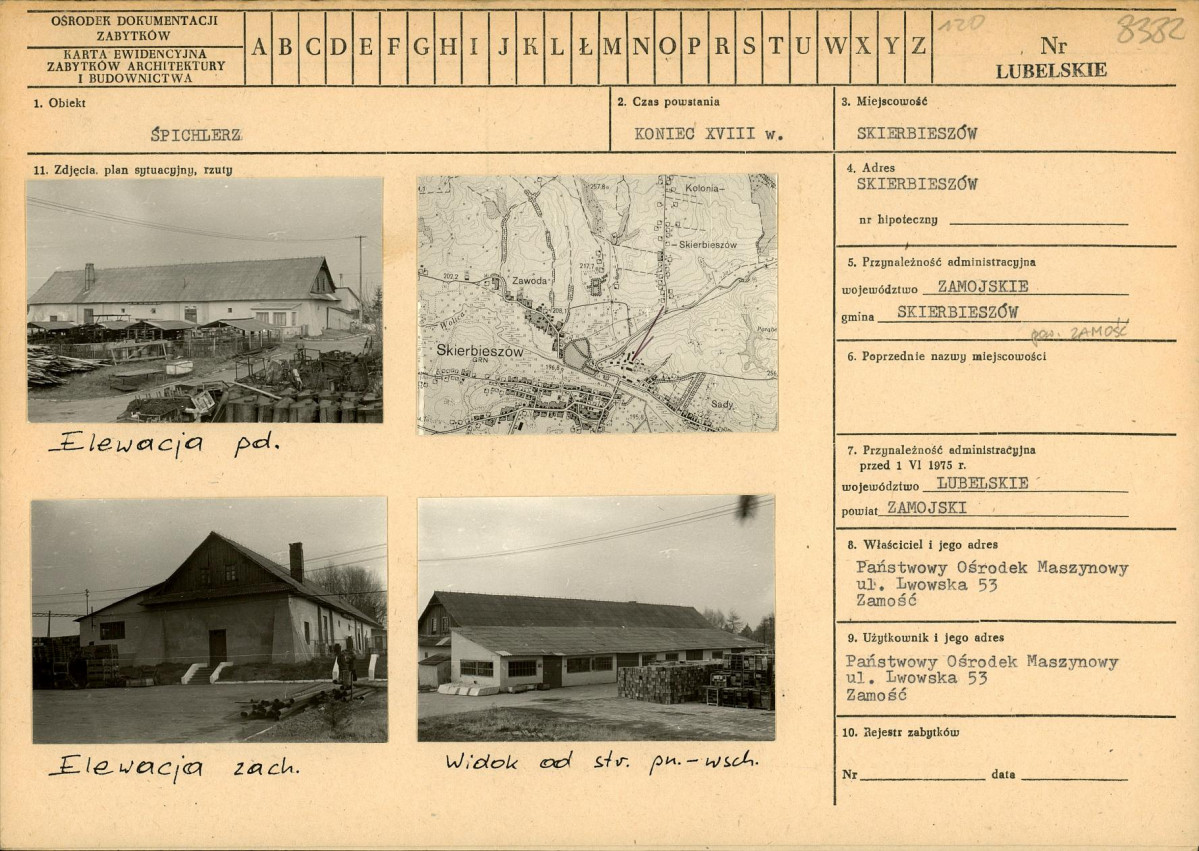 OŚRODEK DOKUMENTACJI
ZABYTKÓW
KARTA EWIDENCYJNA
ZABYTKÓW ARCHITEKTURY
I BUDOWNICTWA
A B C D E F G H I J K L Ł M N O P R S T U W X Y Z
120
8382
Nr
LUBELSKIE
1. Obiekt
ŚPICHLERZ
2. Czas powstania
KONIEC XVIII w.
3. Miejscowość
SKIERBIESZÓW
11. Zdjęcia, plan sytuacyjny, rzuty
4. Adres
SKIERBIESZÓW
nr hipoteczny
5. Przynależność administracyjna
województwo ZAMOJSKIE
gmina SKIERBIESZÓW
pow. ZAMOŚĆ
6. Poprzednie nazwy miejscowości
7. Przynależność administracyjna
przed 1 VI 1975 r.
województwo LUBELSKIE
powiat ZAMOJSKI
8. Właściciel i jego adres
Państwowy Ośrodek Maszynowy
ul. Lwowska 53
Zamość
9. Użytkownik i jego adres
Państwowy Ośrodek Maszynowy
ul. Lwowska 53
Zamość
10. Rejestr zabytków
Nr data
257.8
Kolonia-
-Skierbieszów
202.2
Zawoda
217.7
208.
Wolica
Skierbieszów
GRN
196.8
Sady
Elewacja pd.
Elewacja zach.
Widok od str. pn.-wsch.